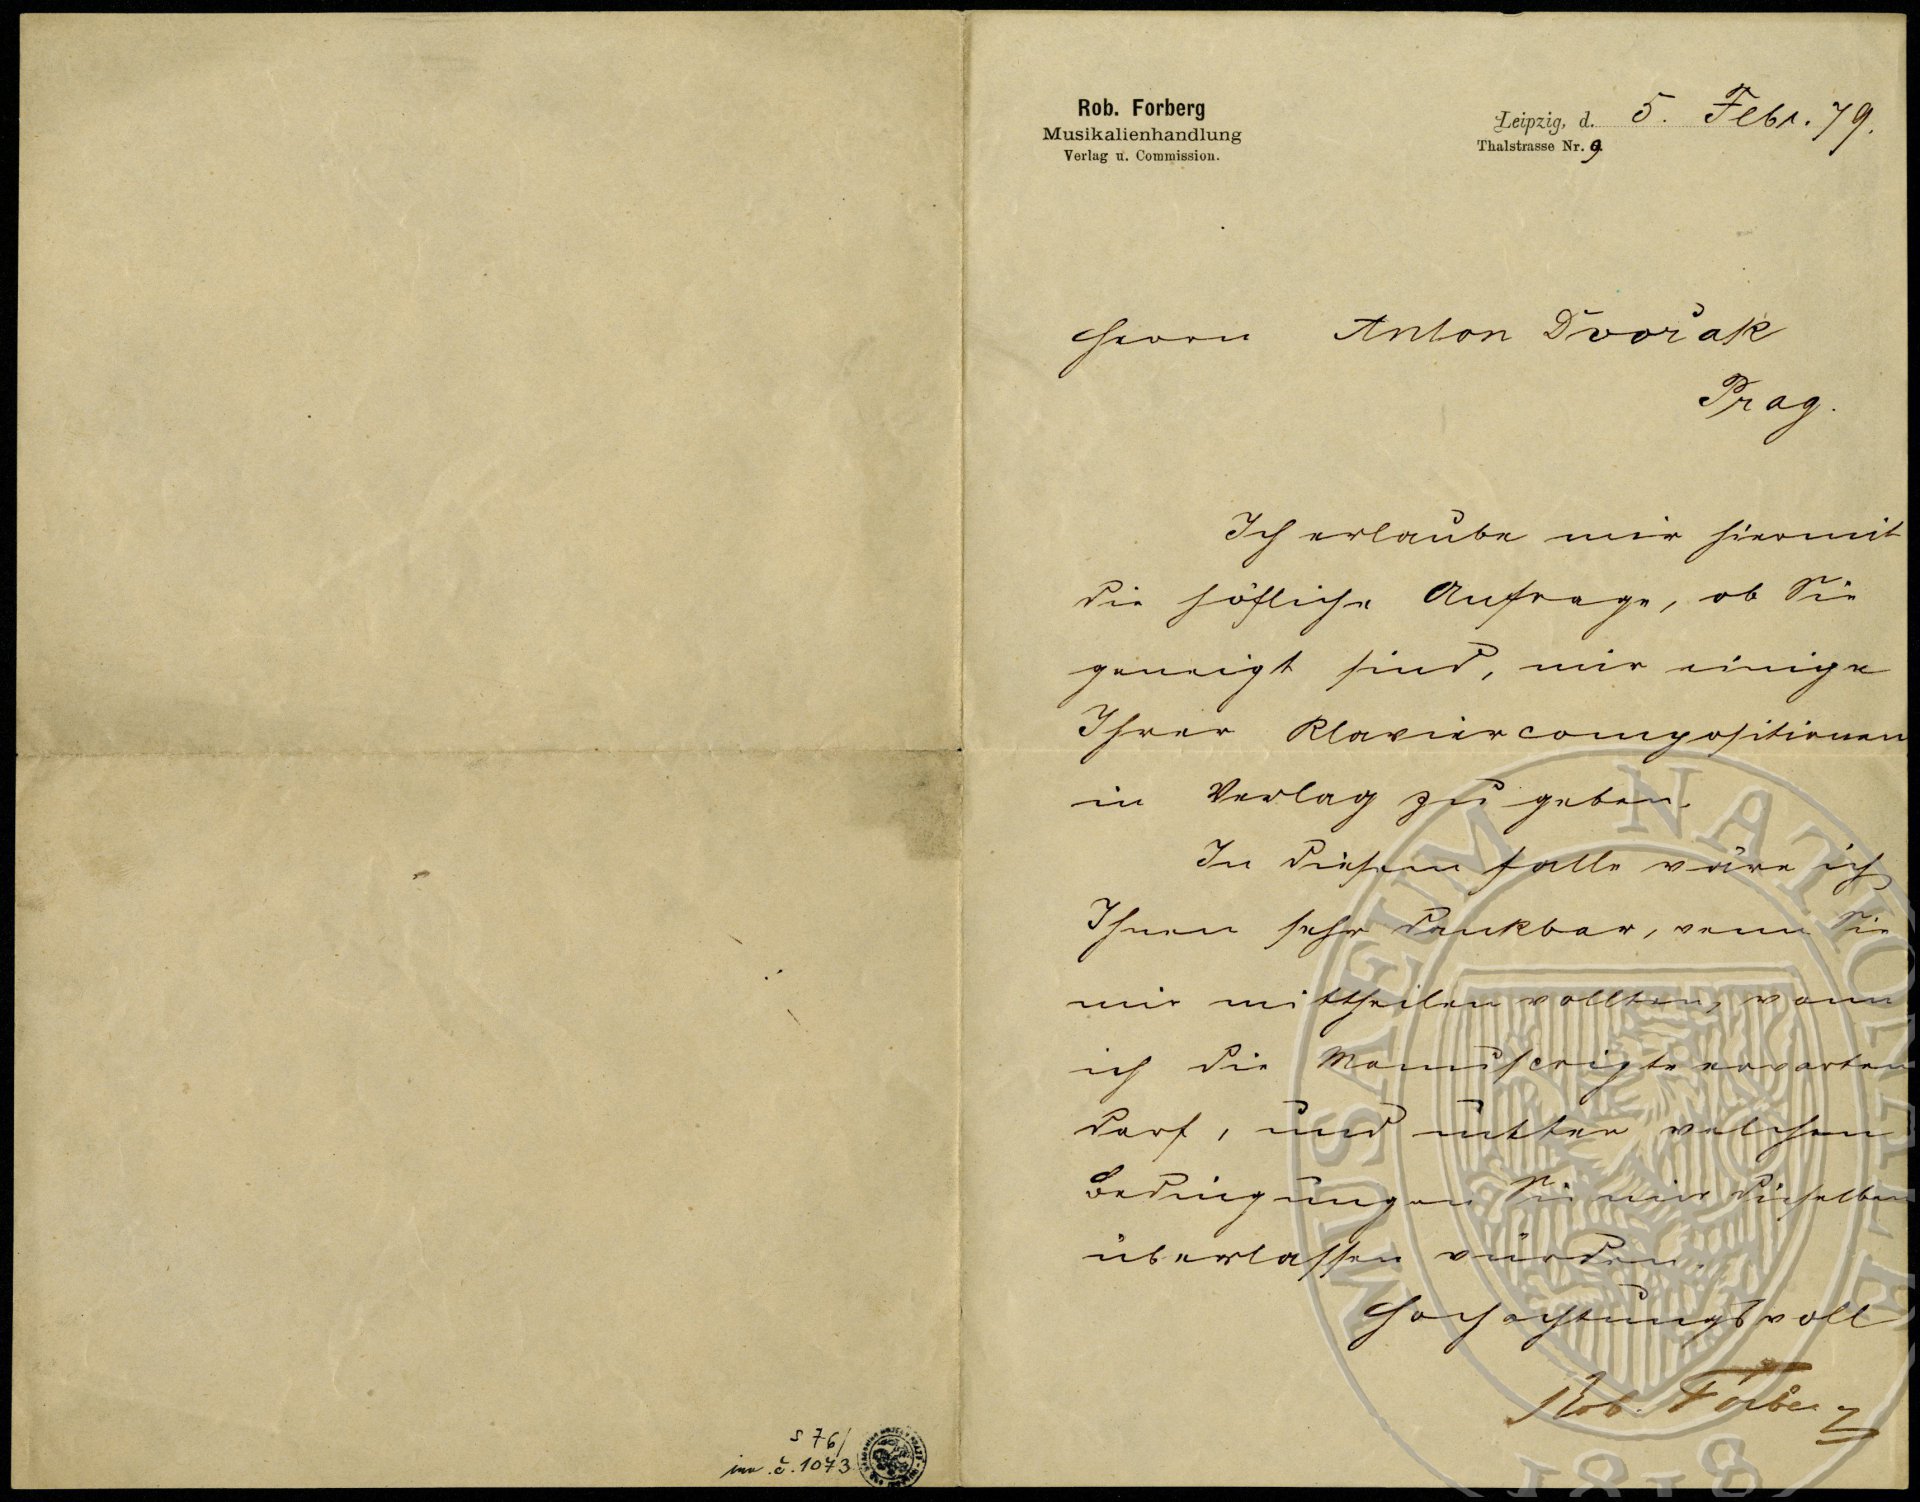 Rob. Forberg
Musikalienhandlung
Verlag u. Commission.
Leipzig, d. 5. Febr. 79.
Thalstrasse Nr. 9.
Herrn Anton Dvořak
Prag.
Ich erlaube mir hiermit
die höfliche Anfrage, ob Sie
geneigt sind, mir einige
Ihrer Klaviercompositionen
in Verlag zu geben.
In diesem Falle wäre ich
Ihnen sehr dankbar, wenn Sie
mir mittheilen wollten, wann
ich die Manuscripte erwarten
darf, und unter welchen
Bedingungen Sie mir dieselben
überlassen würden.
Hochachtungsvoll
Rob. Forberg
S 76/
inv. č. 1073
MUSAEUM NATIONALE
1818